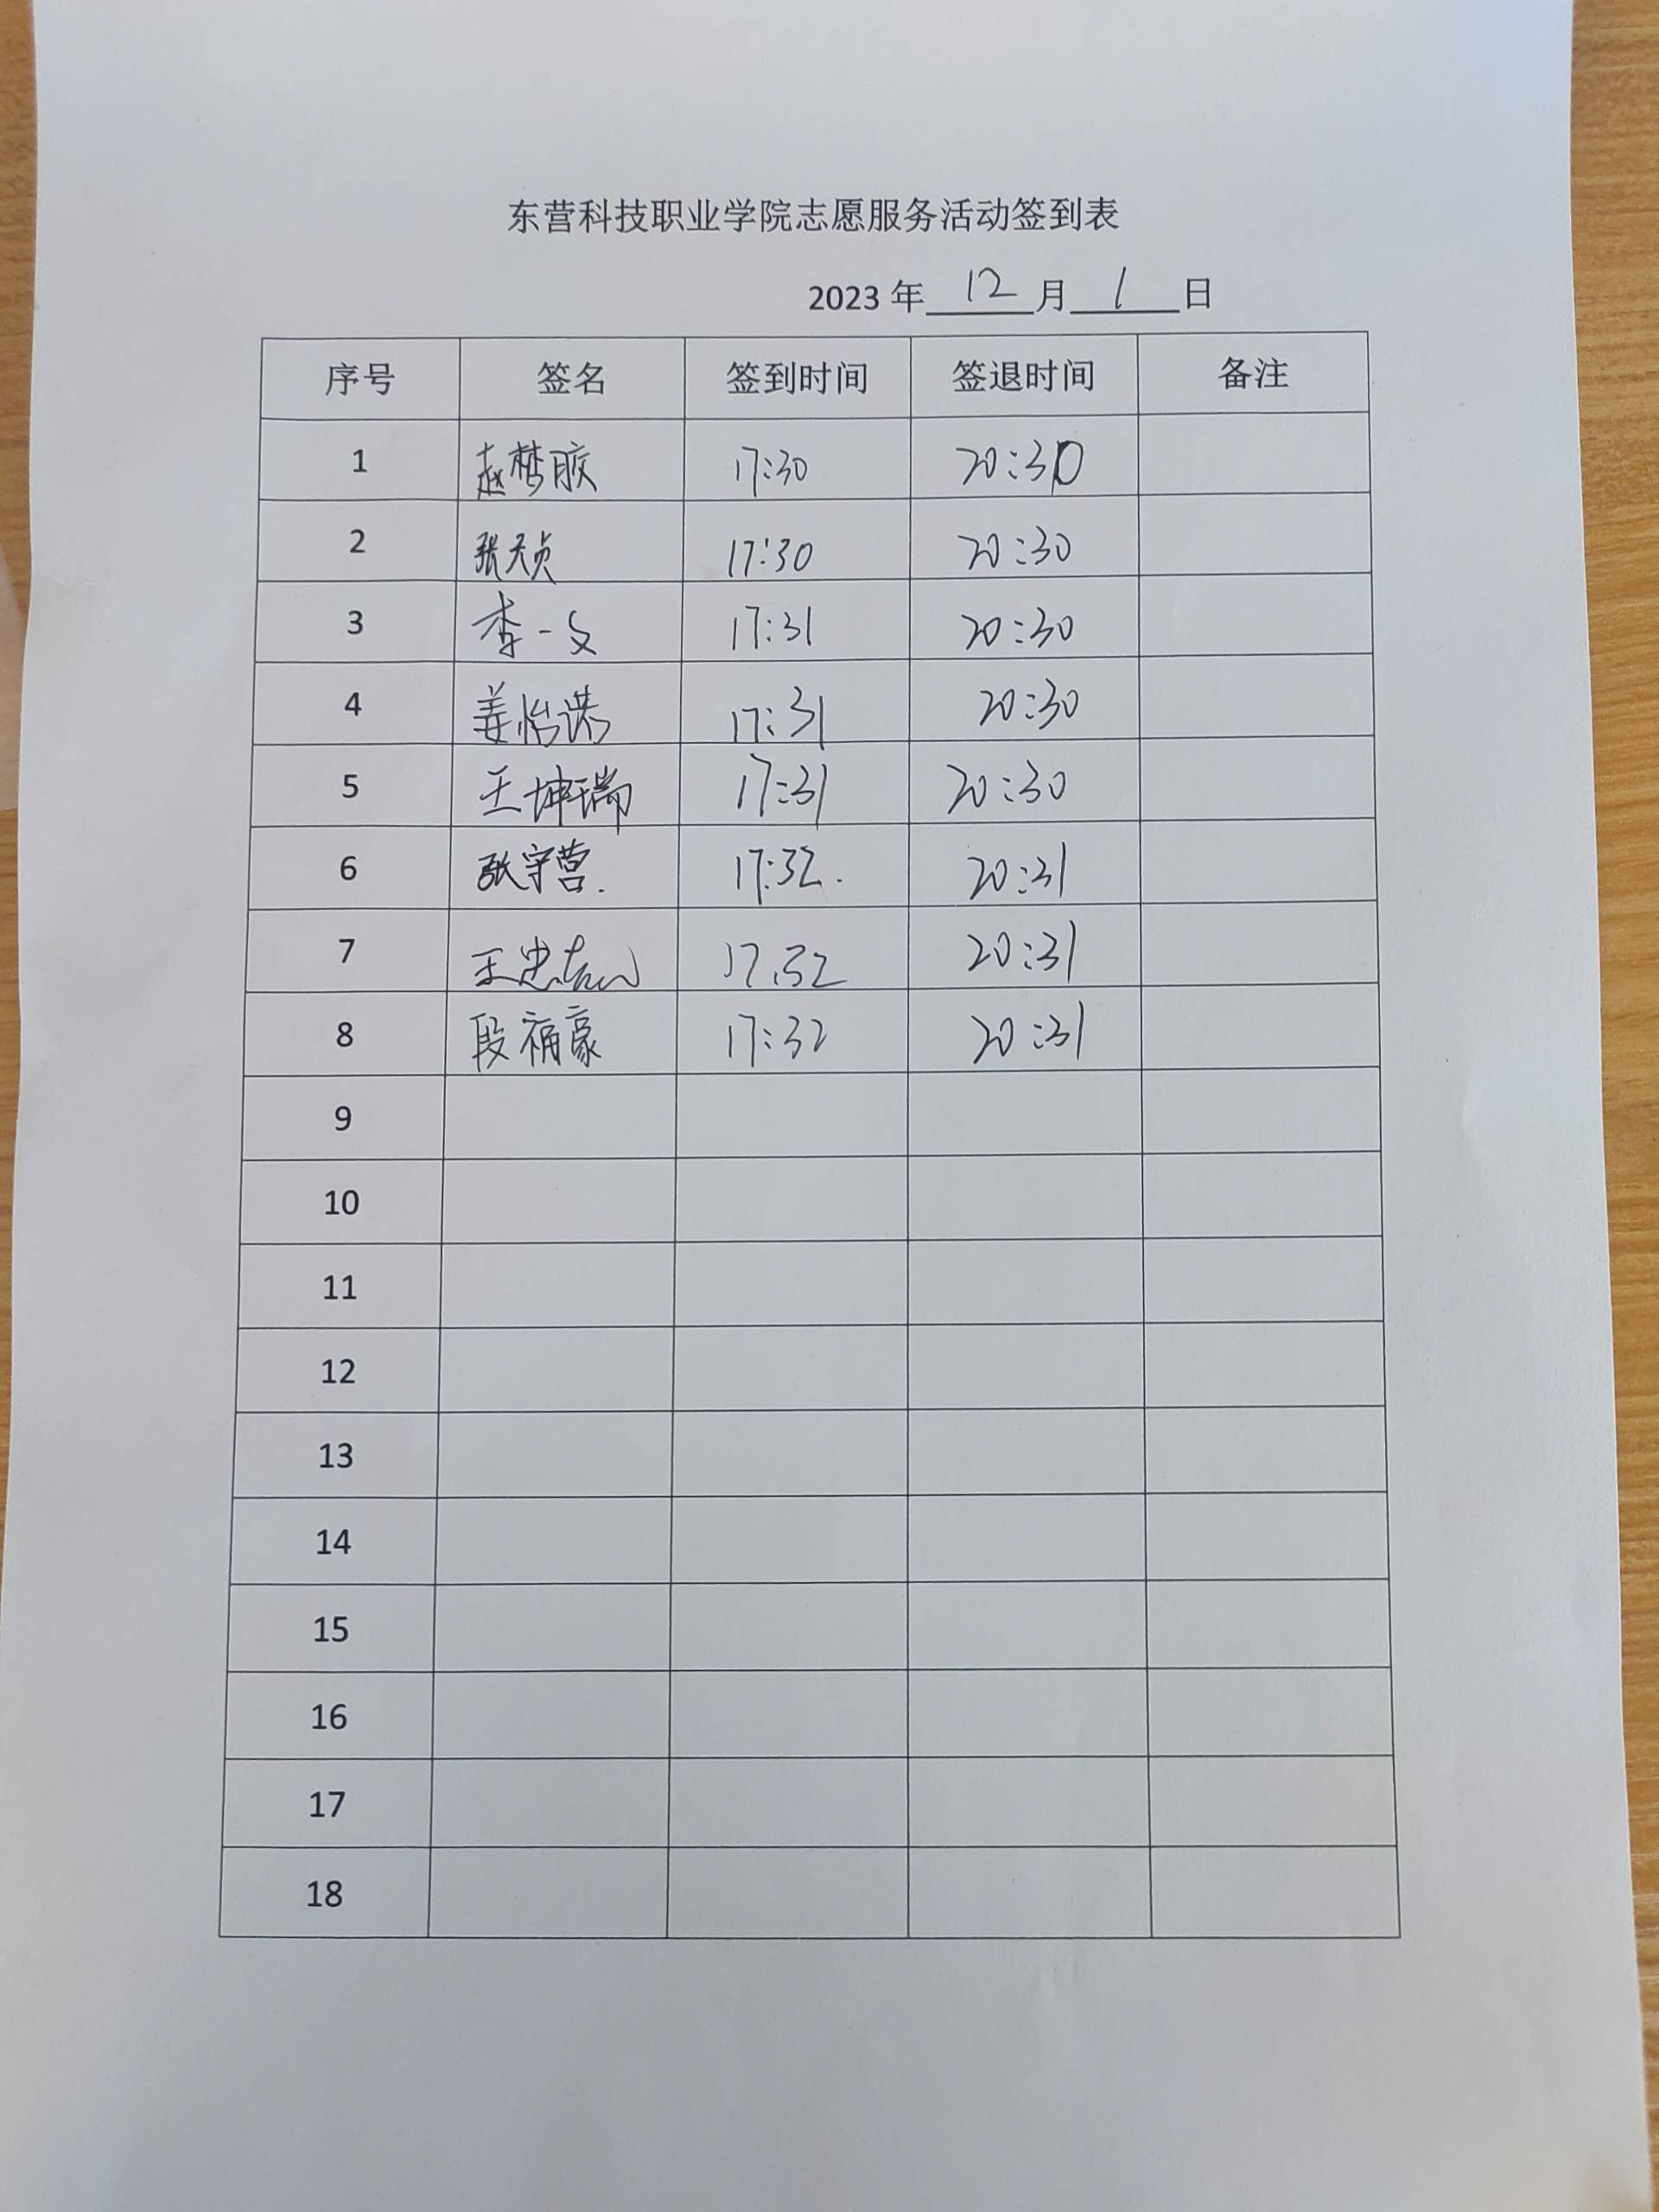 东营科技职业学院志愿服务活动签到表
2023 年 12 月 1 日
序号 签名 签到时间 签退时间 备注
1 赵梦 17:30 20:30
2 张天贞 17:30 20:30
3 李一 17:31 20:30
4 姜怡诺 17:31 20:30
5 王坤瑞 17:31 20:30
6 张守营. 17:32. 20:31
7 王忠志 17.32 20:31
8 段福豪 17:32 20:31
9
10
11
12
13
14
15
16
17
18